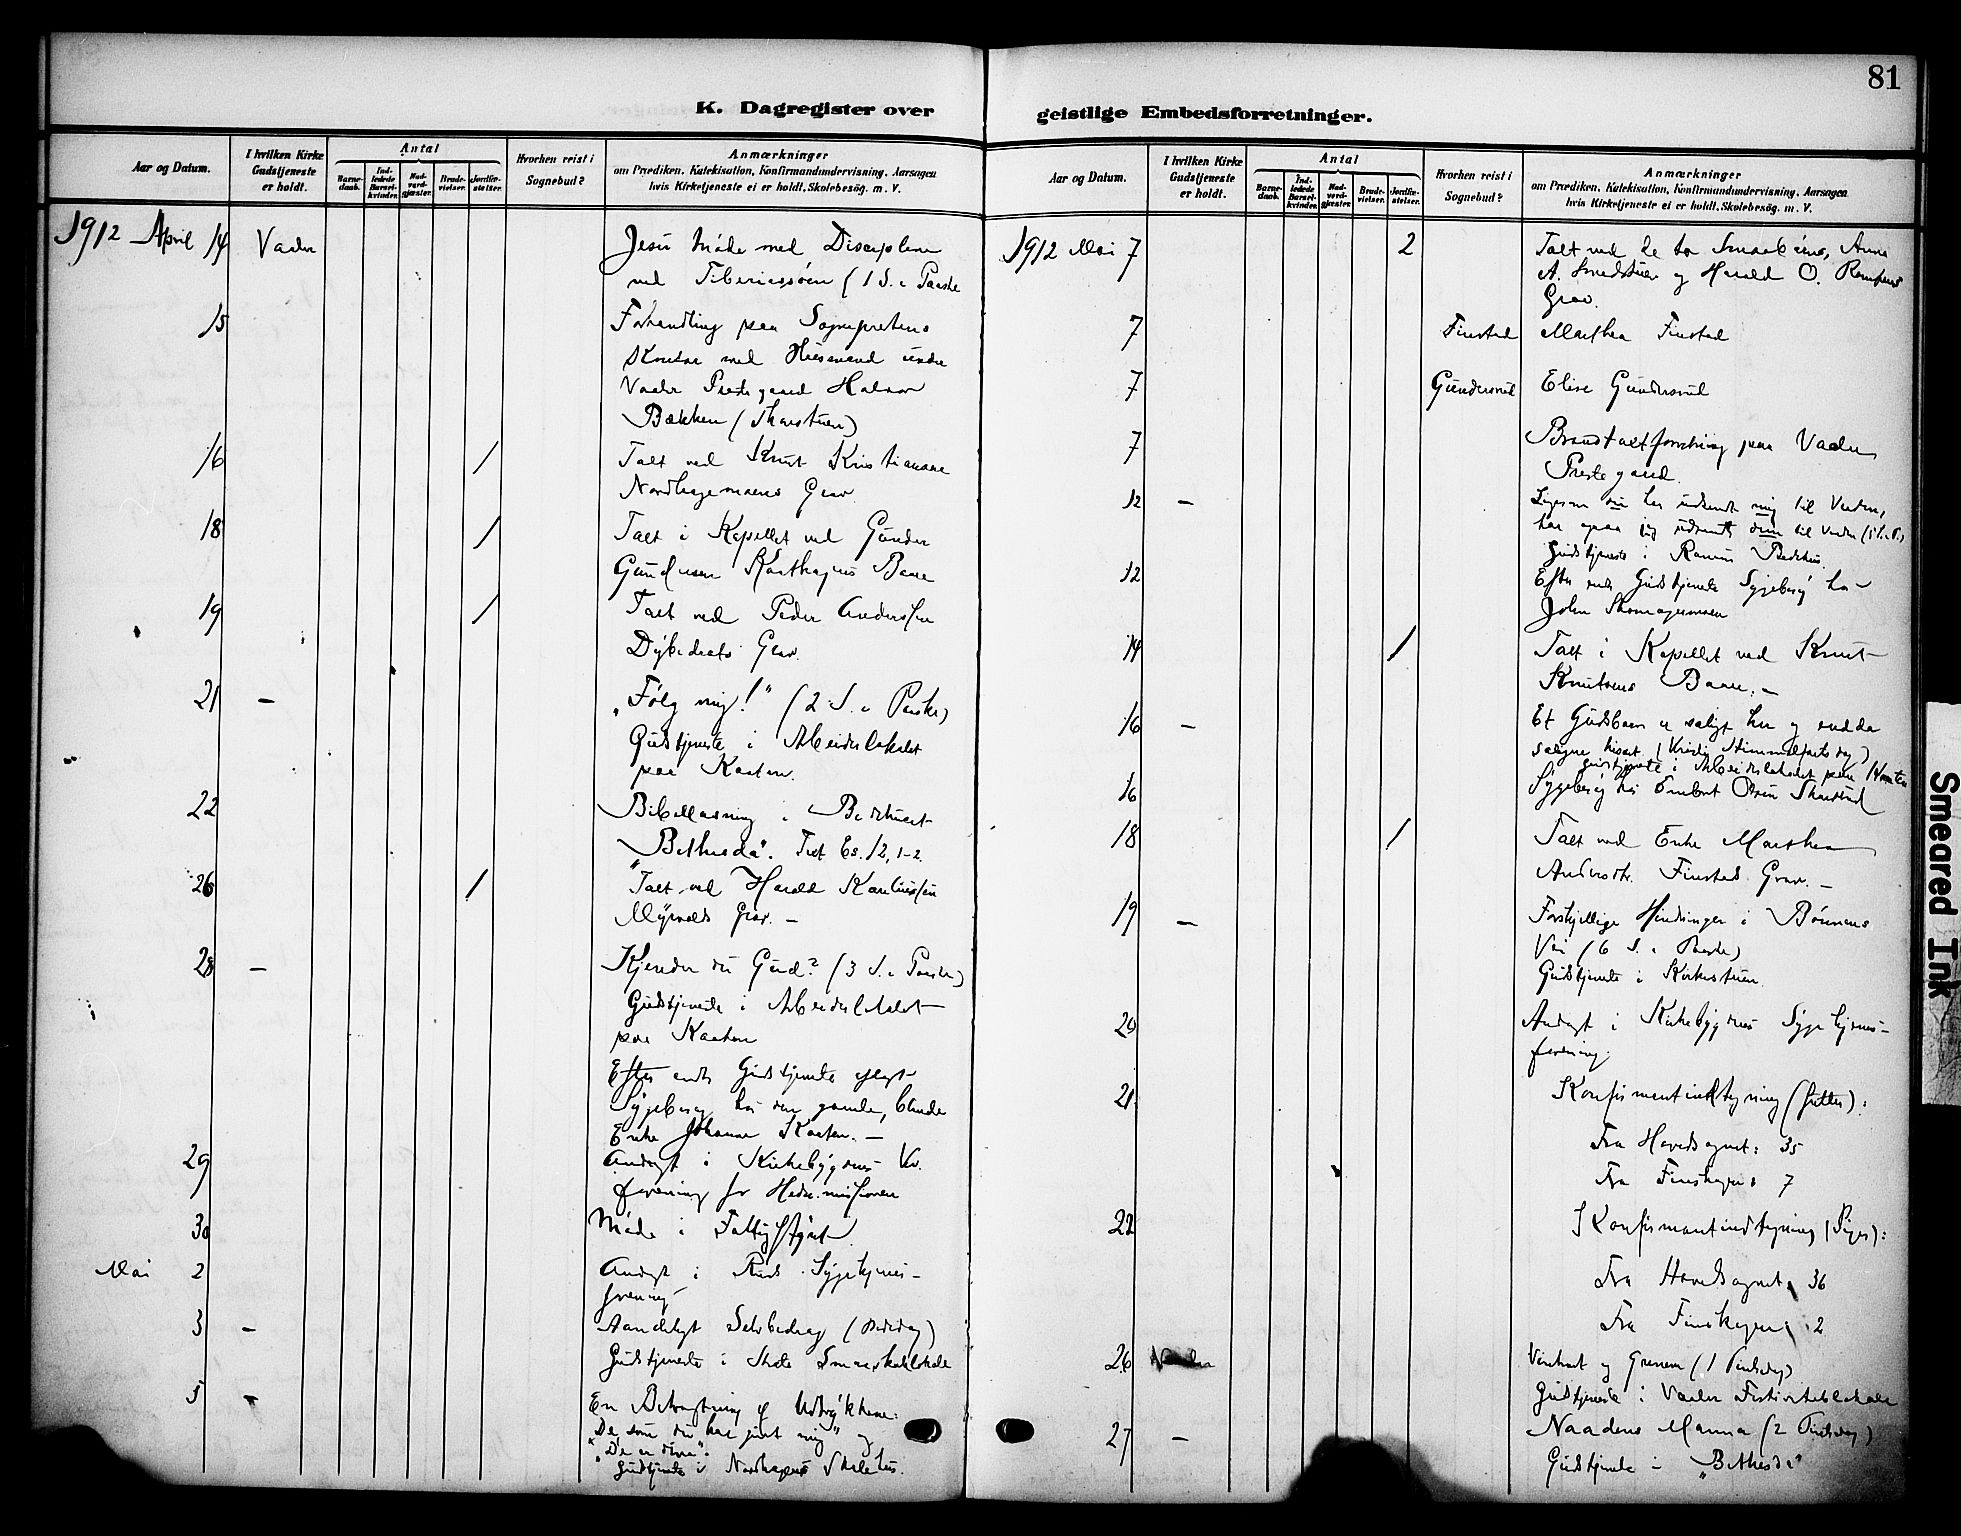 81
K. Dagregister over
geistlige Embedsforretninger.
Aar og Datum.
I hvilken Kirke
Gudstjeneste
er holdt.
Antal
Barne-
daab.
Ind-
ledede
Barsel-
kvinder.
Nad-
verd-
gjæster.
Brude-
vielser.
Jordfæ-
stelser.
Hvorhen reist i
Sognebud?
Anmærkninger
om Prædiken, Katekisation, Konfirmandundervisning, Aarsagen
hvis Kirketjeneste ei er holdt, Skolebesøg. m. V.
1912 April 14 Vaaler
Jesu Møde med Disciplene
ved Tiberiassøen (1 S. e. Paaske
15 Forhandling paa Sogneprestens
Kontor med Husmand under
Vaaler Prestegaard Halvor
Bækken
16 1 Talt ved Knut Kristiansen
Nordhagemoens Grav.
18 1 Talt i Kapellet ved Gunder
Gundersen Baare
19 1 Talt ved Peder Anderssen
Grav.
21 — „Følg mig!" (2 S. e. Paaske)
Gudstjeneste i Arbeiderlokalet
paa Kasten.
22 Bibellæsning i Bedehuset
„Bethesda". Text Es. 12, 1-2.
26 1 Talt ved Harald Karelius sen
Myrvolds Grav. —
28 — Kjender du Gud? (3 S. e. Paaske)
Gudstjeneste i Arbeiderlokalet
paa Kasten
Efter endt Gudstjeneste aflagt
Sygebesøg hos den gamle, blinde
Enke Johanne Kasten. —
29 Andagt i Kirkebygdens Kv.
forening for Hedn. missionen
30 Møde i Fattigstyret
Mai 2 Andagt i Risb. Sygepleies-
forening
3 — Aandeligt Selvbedrag (Bededag)
Gudstjeneste i Smaaskolelokale
5 — En Betragtning af Udtrykkene:
„De som du har givet mig" og
„De er dine".
Gudstjeneste i Nordhagens Skolehus.
Aar og Datum.
I hvilken Kirke
Gudstjeneste
er holdt.
Antal
Barne-
daab.
Ind-
ledede
Barsel-
kvinder.
Nad-
verd-
gjæster.
Brude-
vielser.
Jordfæ-
stelser.
Hvorhen reist i
Sognebud?
Anmærkninger
om Prædiken, Katekisation, Konfirmandundervisning, Aarsagen
hvis Kirketjeneste ei er holdt, Skolebesøg. m. V.
1912 Mai 7 2 Talt ved de to Smaabørns, Anna
A. Smedstuen og Harald O.
Grav.
7 Finstad Marthea Finstad
7 Gundersrud Elise Gundersrud
7 Brandtaktforretning paa Vaaler
Prestegaard.
12 — Ligesom du har udsendt mig til Verden,
har ogsaa jeg udsendt dem til Verden
Gudstjeneste i Bedehus.
12 Efter endt Gudstjeneste Sygebesøg hos
John Skomagermoen
14 1 Talt i Kapellet ved Knut
Knutsens Baare. —
16 — Et Gudsbarn er saligt her og endda
saligere hisset (Kristi Himmelfartsdag)
Gudstjeneste i Arbeiderlokalet paa Kasten
16 Sygebesøg hos Embret Olsen
18 1 Talt ved Enke Marthea
Andersdtr. Finstads Grav. —
19 — Forskjellige Hindringer i Bønnens
Vei (6 S. e. Paaske)
Gudstjeneste i Kirkestuen.
20 Andagt i Kirkebygdens Sygepleies-
forening.
21 Konfirmantindskrivning (Gutter):
Fra Hovedsognet: 35
Fra Finskogen: 7
22 Konfirmantindskrivning (Piger):
Fra Hovedsognet: 36
Fra Finskogen: 2
26 Vaaler Vintræet og Grenene (1 Pinsedag)
Gudstjeneste i Vaaler Festivitetslokale
27 — Naadens Manna (2 Pinsedag)
Gudstjeneste i „Bethesda"
Smeared Ink